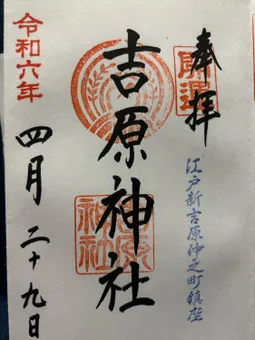 奉拝
開運
江戸新吉原仲之町鎮座
吉原神社
吉原神社
令和六年
四月二十九日